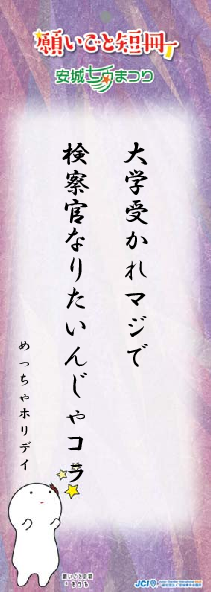 願いごと短冊
安城七夕まつり
大学受かれマジで
検察官なりたいんじゃコラ
めっちゃホリデイ
JCI